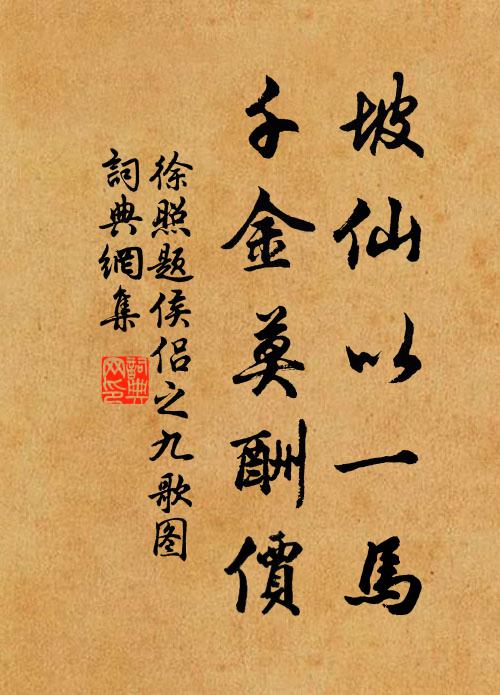 坡仙以一馬
千金莫酬價
徐照题侯侣之九歌图
詞典網集
詞典網印